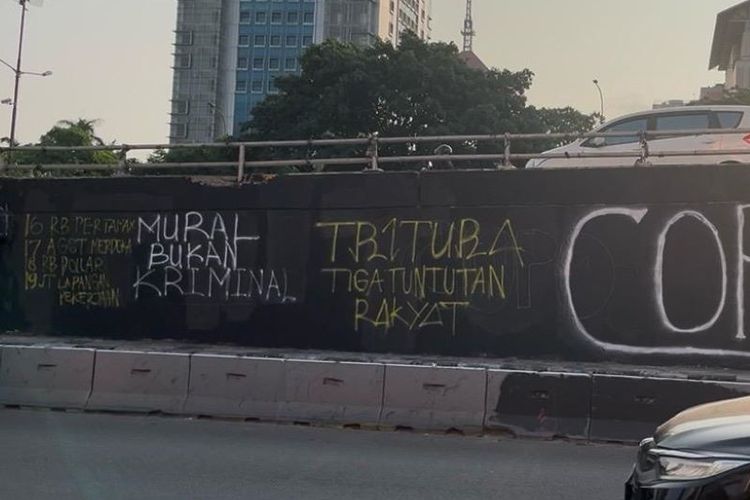 16 RB PERTAMAX
17 AGST MERDEKA
18 RB DOLLAR
19 JT LAPANGAN
PEKERJAAN
MURAL
BUKAN
KRIMINAL
TR1TURA
TIGA TUNTUTAN
RAKYAT
COR